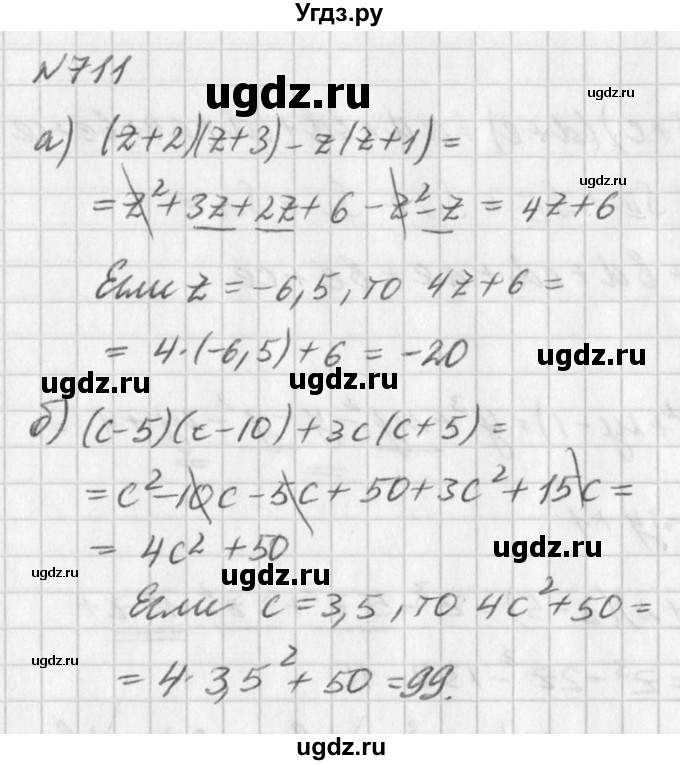 Угдз.ру
№711
ugdz.ru
ugdz.ru
а) (z+2)(z+3)-z(z+1)=
=z²+3z+2z+6-z²-z=4z+6
ugdz.ru
Если z=-6,5, то 4z+6=
=4·(-6,5)+6=-20
ugdz.ru
ugdz.ru
ugdz.ru
б) (c-5)(c-10)+3c(c+5)=
=c²-10c-5c+50+3c²+15c=
=4c²+50
ugdz.ru
ugdz.ru
ugdz.ru
Если c=3,5, то 4c²+50=
ugdz.ru
=4·3,5²+50=99.
ugdz.ru